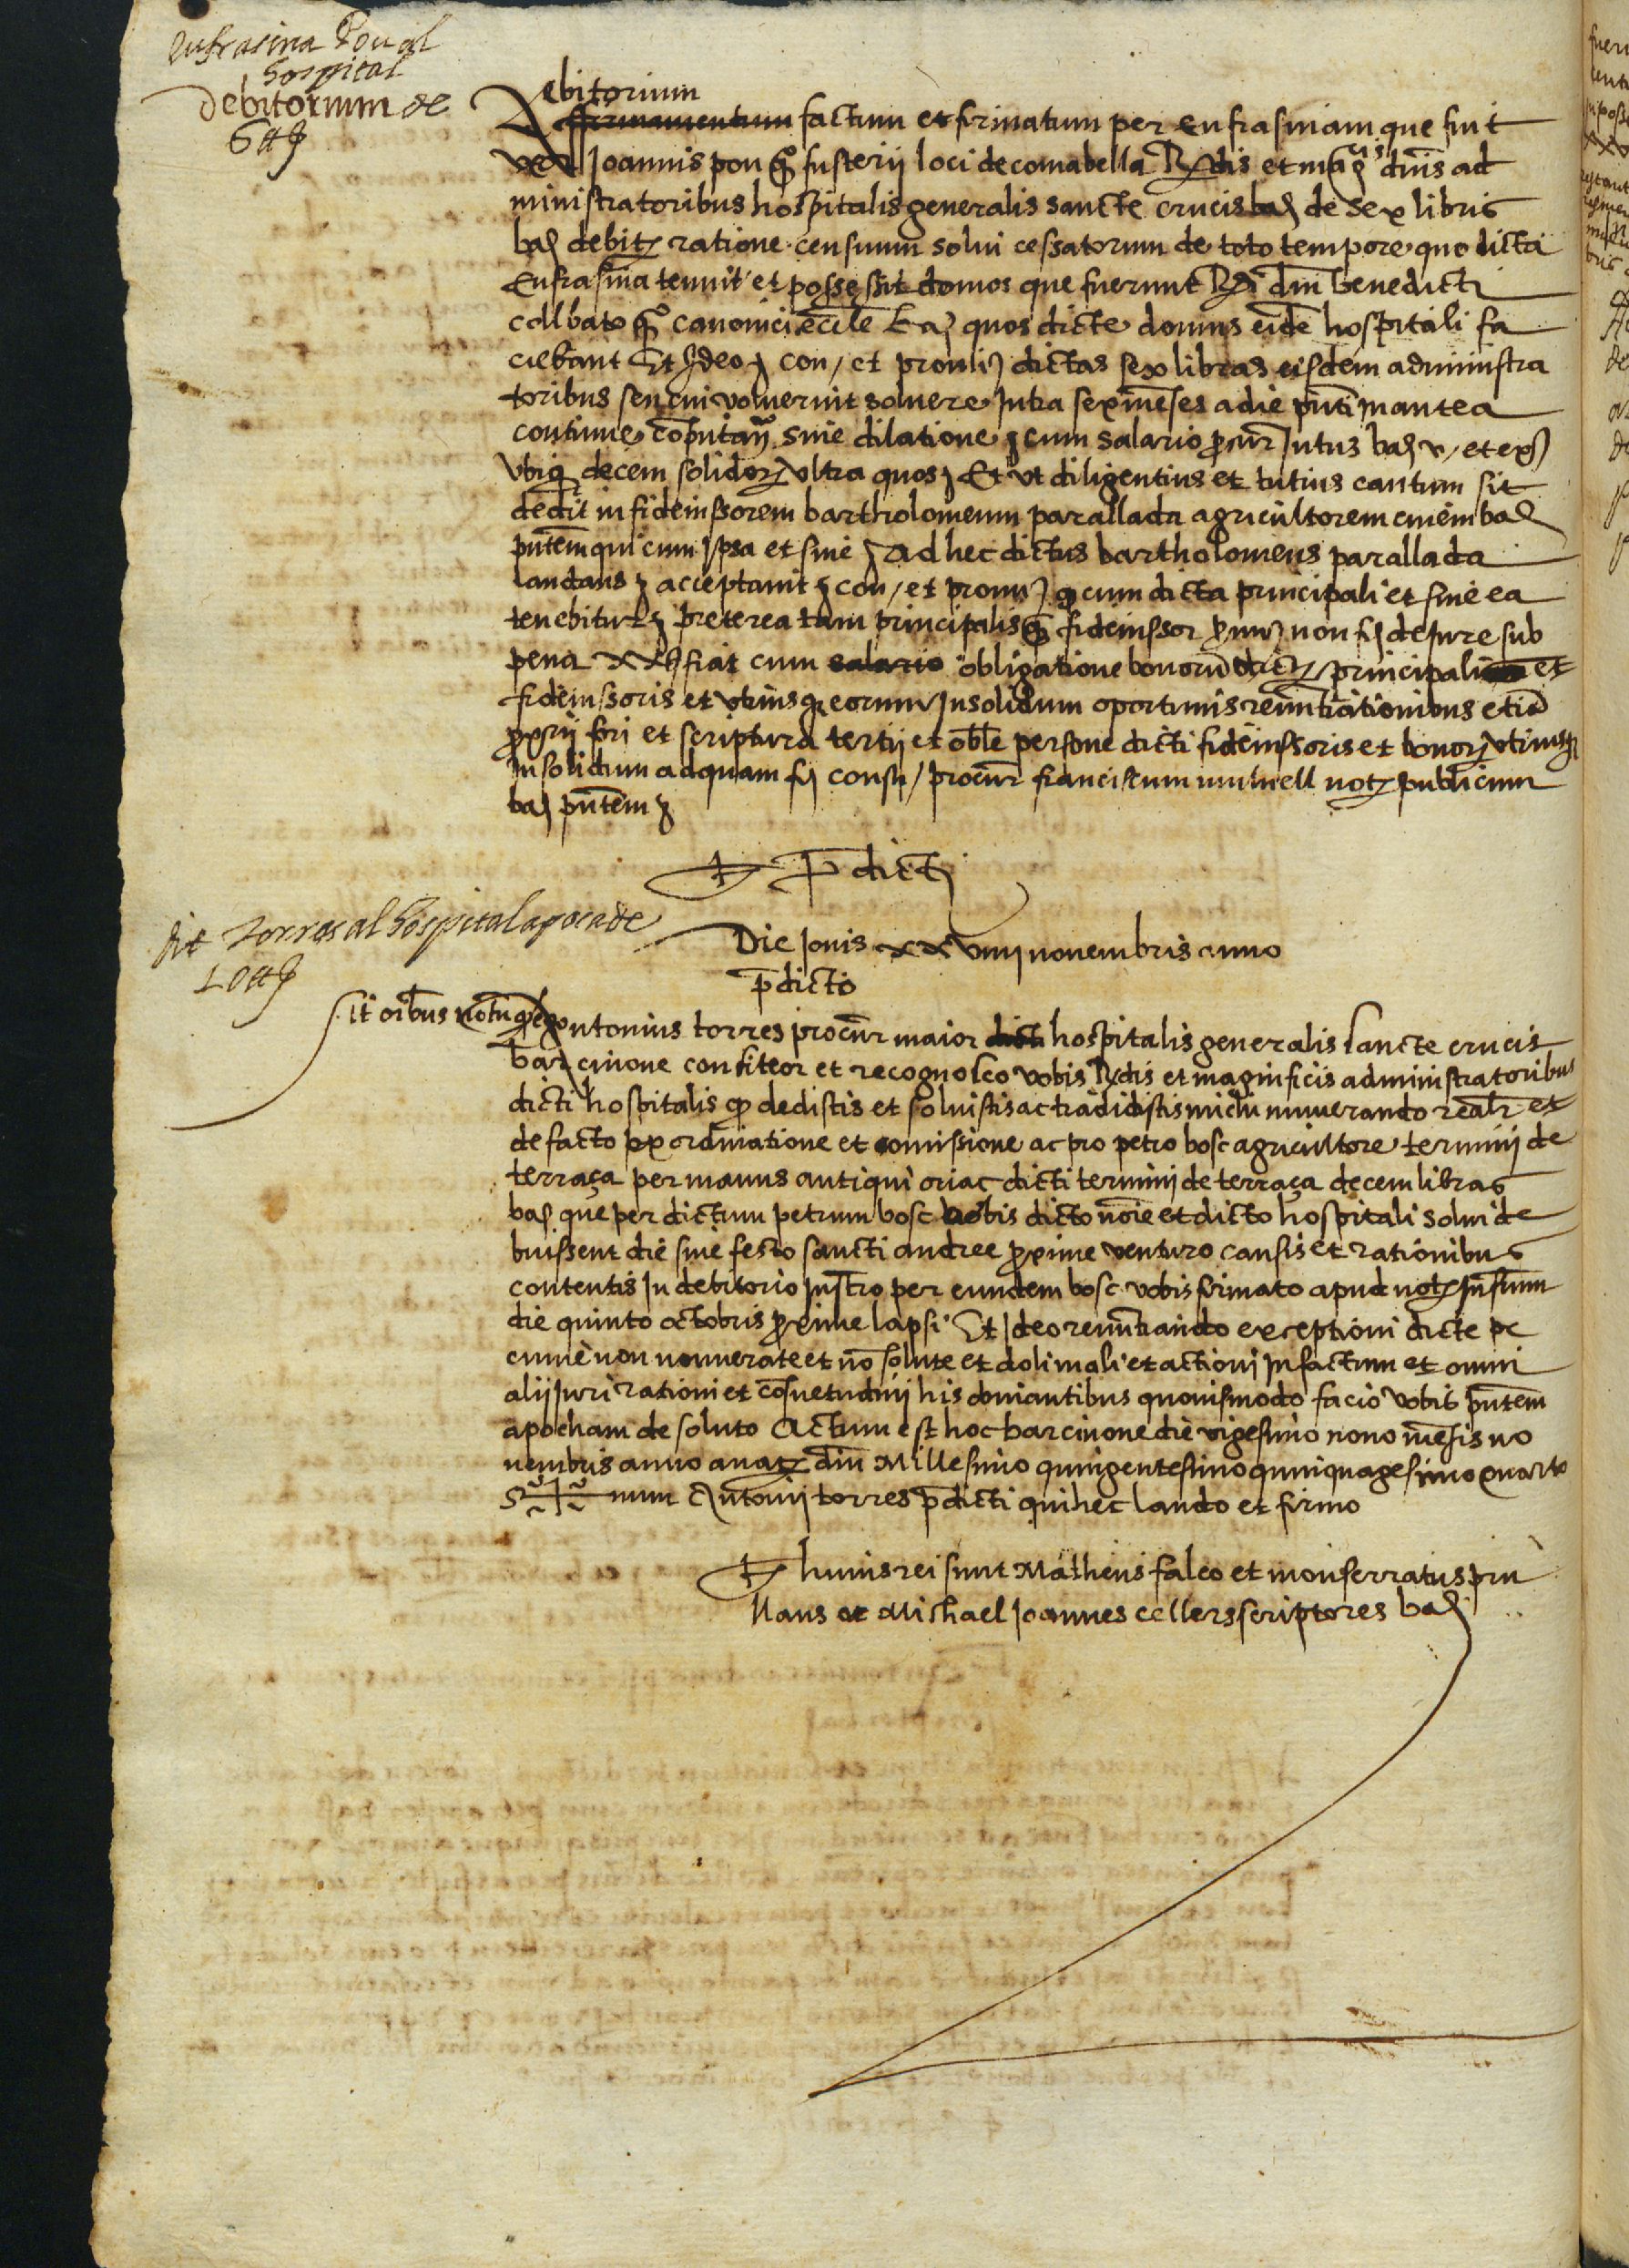 Eufrasina Pou al
hospital
debitorium de
6 ₶
ebitorium
Affirmamentum factum et firmatum per eufrasinam que fuit
vxor Joannis pou qº fusterii loci de comabella Rdis et magcis dnis ad
ministratoribus hospitalis generalis sancte crucis bar de sex libris
bar debitis ratione censuum solui cessatorum de toto tempore quo dicta
Eufrasina tenuit et possessit domos que fuerunt Rdi dni benedicti
collbato qº canonici ecclie bar quos dicte domus eidē hospitali fa
ciebant Et Ideo con / et promit dictas sex libras eisdem administra
toribus seu cui voluerint soluere Intra sex mēses a die pnti in antea
continue cōputan sine dilatione cum salario procur Intus bar v / et extra
vbiq decem solidor vltra quos Et vt diligentius et tutius cautum sit
dedit in fideiussorem bartholomeum parallada agricultorem ciuem bar
pntem qui cum Ipsa et sine Ad hec dictus bartholomeus parallada
laudans acceptauit con / et promit q cum dicta principali et sine ea
tenebitur preterea tam principalis q fideiussor promit non fir de Jure sub
pena xx fiat cum salario obligatione bonorū dicte principalis et
fideiussoris et vtriusq eorum Insolidum oportunis renuntiationibus etiā
proprii fori et scriptura tertii et oble persone dicti fideiussoris et bonor vtriusq
Insolidum ad quam fir constit / procur franciscum mulnell not publicum
bar pntem
T p dicti
Die Jouis xxviiij nouembris anno
pdicto
de Torres al hospital apoca de
10 ₶
Sit oibus notū q ego Antonius torres procur maior dicti hospitalis generalis sancte crucis
barcinone confiteor et recognosco vobis Rdis et magnificis administratoribus
dicti hospitalis q dedistis et soluistis ac tradidistis michi numerando realr et
de facto ex ordinatione et comissione ac pro petro bosc agricultore termini de
terraça per manus antiqui oriac dicti termini de terraça decem libras
bar que per dictum petrum bosc vobis dicto noīe et dicto hospitali solui de
buissent die siue festo sancti andree proxime venturo causis et rationibus
contentis In debitorio Instro per eundem bosc vobis firmato apud not Infrum
die quinto octobris proxime lapsi Et Ideo renuntiando exceptioni dicte pe
cunie non numerate et nō solute et doli mali et actioni In factum et omni
alij Juri rationi et cōsuetudini his obuiantibus quouismodo facio vobis pntem
apocham de soluto Actum est hoc barcinone die vigesimo nono mēsis no
uembris anno a nat dni Millesimo quingentesimo quinquagesimo quarto
Sig+num Antonij torres pdicti qui hec laudo et firmo
T huius rei sunt Matheus falco et monserratus priu
llans et Michael Joannes cellers scriptores bar